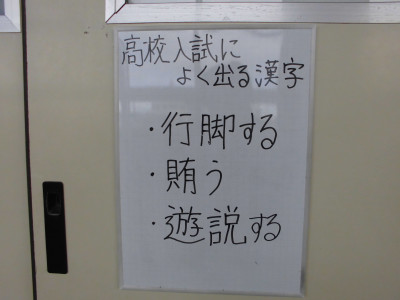 高校入試に
よく出る漢字
・行脚する
・賄う
・遊説する